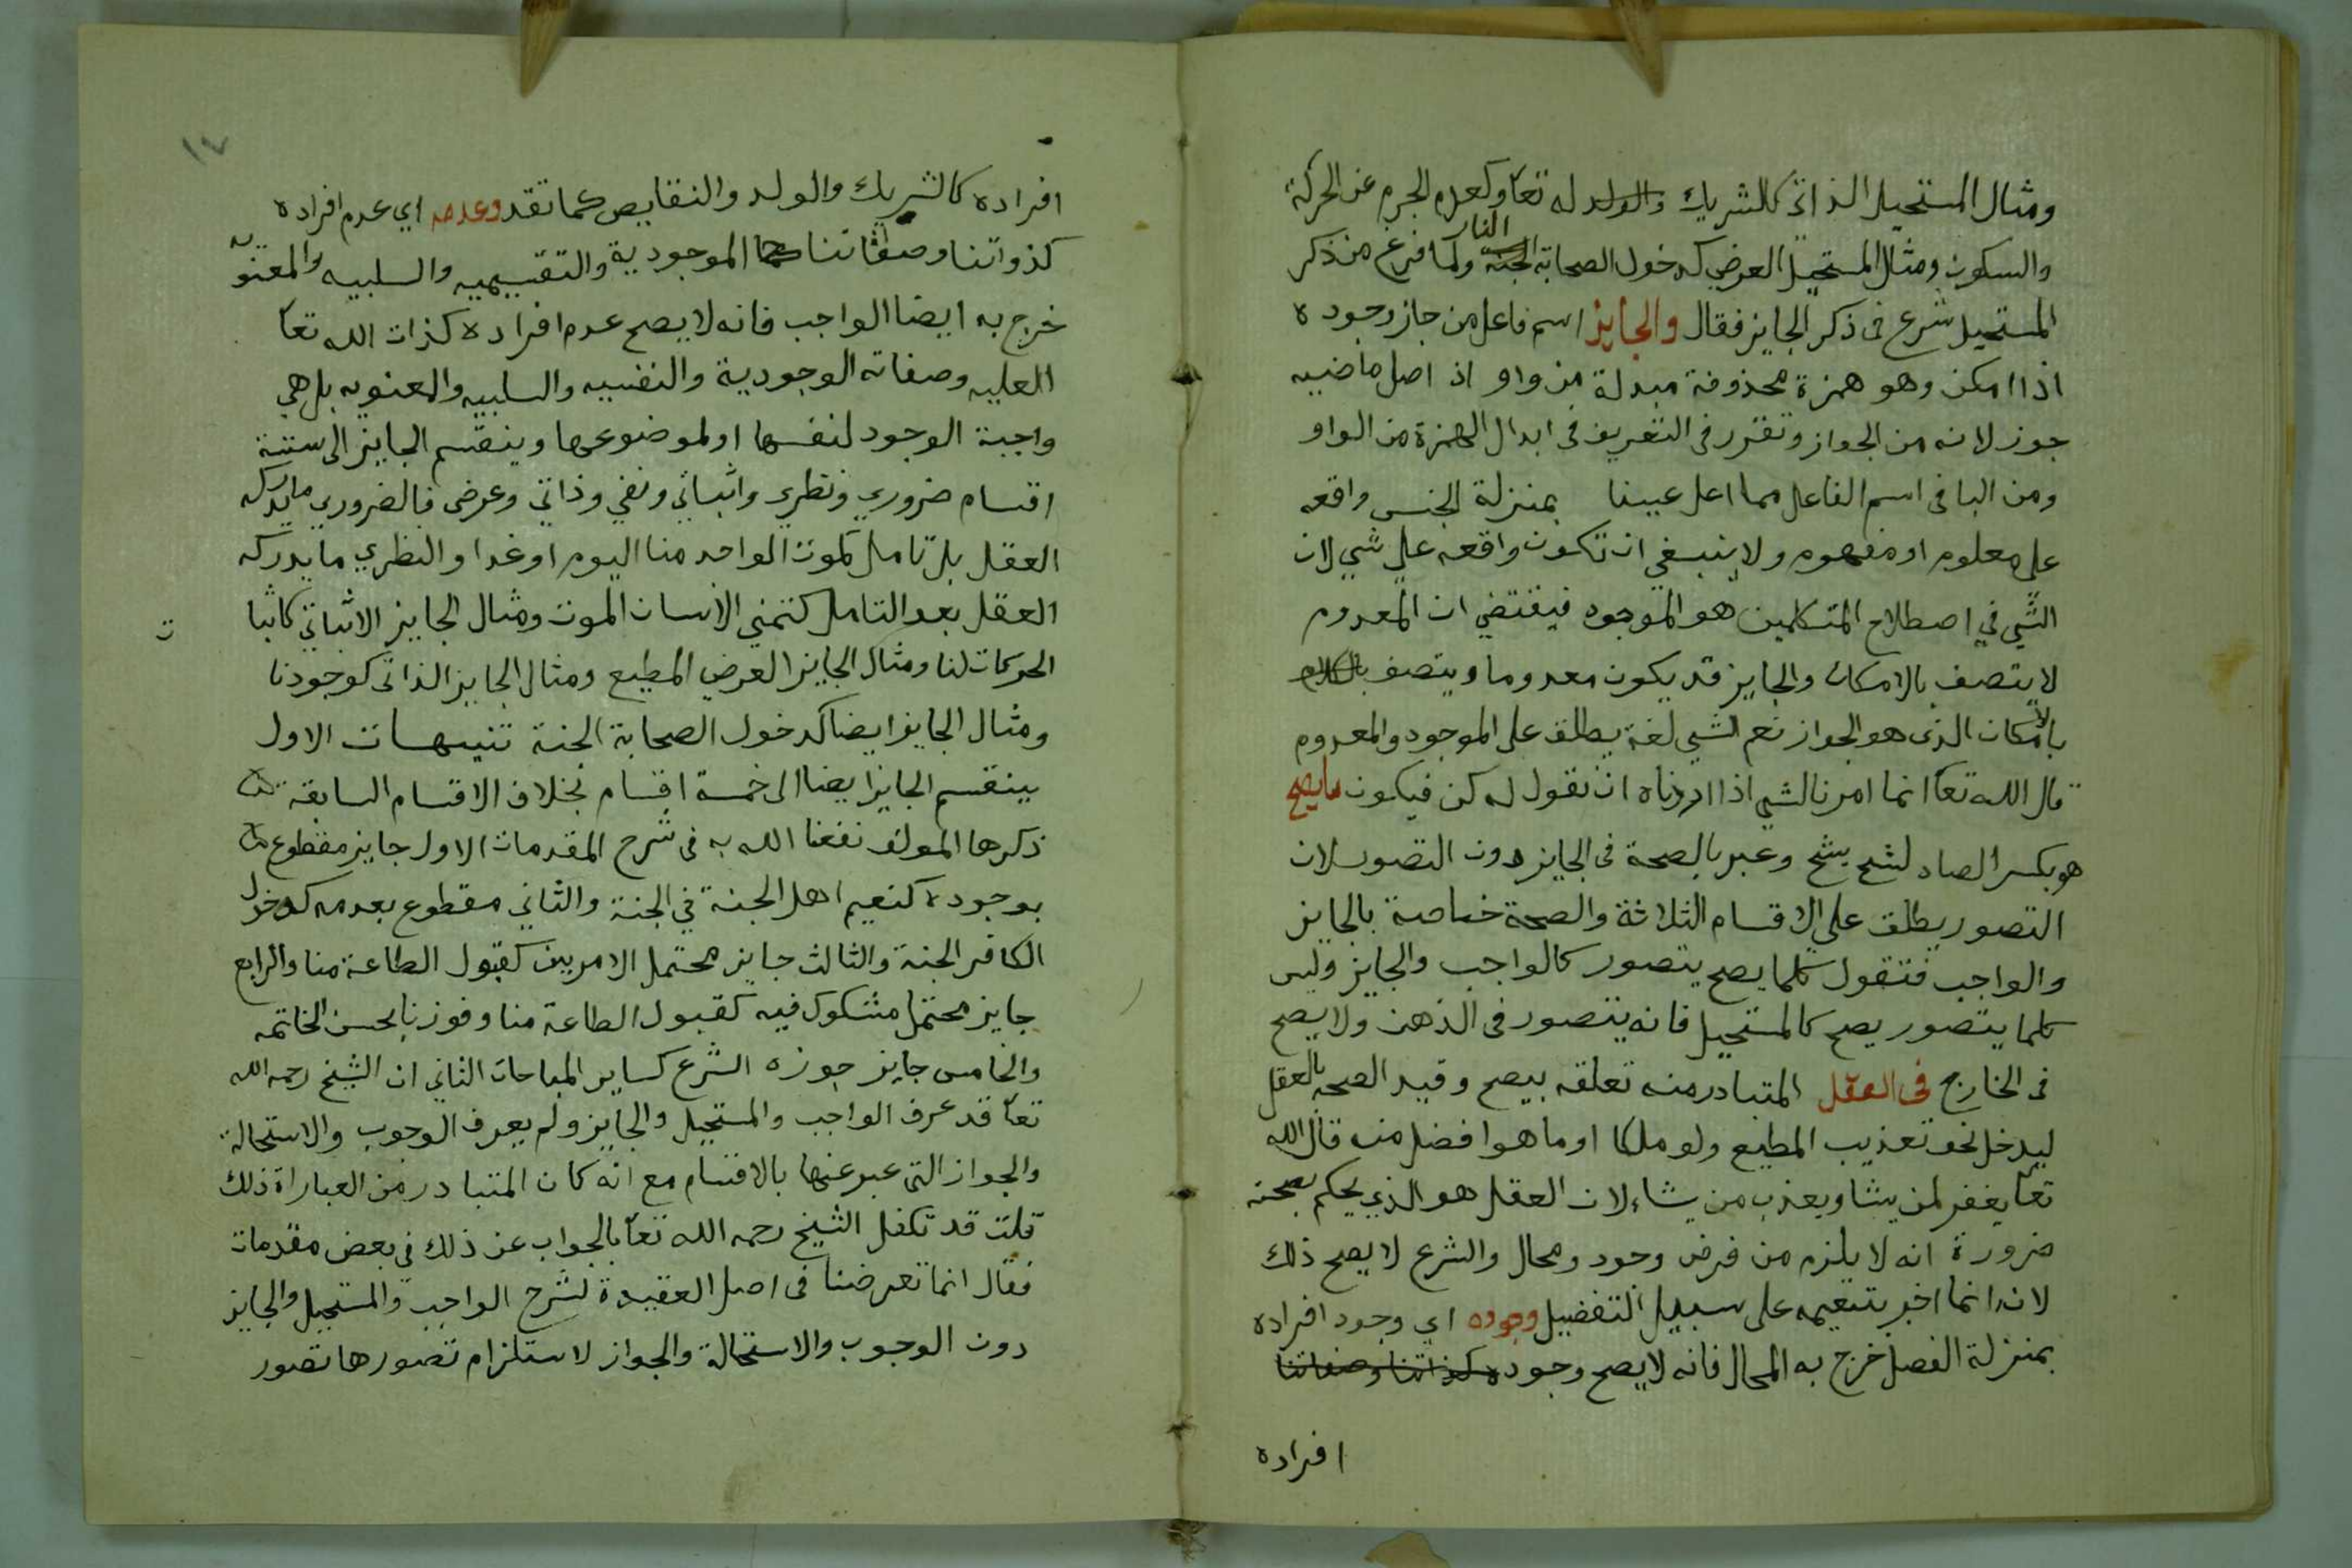 ومثال المستحيل الذاتي كالشريك والولد له تعا وكعدم الجرم عن الحركة
والسكون ومثال المستحيل العرضي كدخول الصحابة الجنة النار ولما فرغ من ذكر
المستحيل شرع في ذكر الجايز فقال والجايز اسم فاعل من جاز وجوده
اذا امكن وهو همزة محذوفة مبدلة من واو اذ اصل ماضيه
جوز لانه من الجواز وتقرر في التعريف في ابدال الهمزة من الواو
ومن اليا في اسم الفاعل مما اعل عينا بمنزلة الجنس واقعه
على معلوم او مفهوم ولا ينبغي ان تكون واقعه على شي لان
الشي في اصطلاح المتكلمين هو الموجود فيقتضي ان المعدوم
لا يتصف بالامكان والجايز قد يكون معدوما ويتصف
بالامكان الذى هو الجواز نعم الشي لغة يطلق على الموجود والمعدوم
قال الله تعا انما امرنا لشي اذا اردناه ان نقول له كن فيكون ما يصح
هو بكسر الصاد لشح يشح وعبر بالصحة في الجايز دون التصور لان
التصور يطلق على الاقسام الثلاثة والصحة خاصة بالجايز
والواجب فتقول كلما يصح يتصور كالواجب والجايز وليس
كلما يتصور يصح كالمستحيل فانه يتصور في الذهن ولا يصح
في الخارج في العقل المتبادر منه تعلقه بيصح وقيد الصحه بالعقل
ليدخل نحو تعذيب المطيع ولو ملكا او ما هو افضل منه قال الله
تعا يغفر لمن يشا ويعذب من يشاء لان العقل هو الذي يحكم بصحته
ضرورة انه لا يلزم من فرض وجود ومحال والشرع لا يصح ذلك
لانه انما اخبر بتنعيمه على سبيل التفضيل وجوده اي وجود افراده
بمنزلة الفصل خرج به المحال فانه لا يصح وجود كذاتنا وصفاتنا
افراده
١٧
افراده كالشريك والولد والنقايص كما تقد وعدمه اي عدم افراده
كذواتنا وصفاتنا الموجودية والتقسيميه والسلبيه والمعنويه
خرج به ايضا الواجب فانه لا يصح عدم افراده كذات الله تعا
العليه وصفاته الوجودية والنفسيه والسلبيه والمعنويه بل هي
واجبة الوجود لنفسها او لموضوعها وينقسم الجايز الى ستة
اقسام ضروري ونظري واثباتي ونفي وذاتي وعرضي فالضروري ما يدركه
العقل بلا تامل كموت الواحد منا اليوم او غدا والنظري ما يدركه
العقل بعد التامل كتمني الانسان الموت ومثال الجايز الاثباتي كاثبا
ت
الحركات لنا ومثال الجايز العرضي المطيع ومثال الجايز الذاتي كوجودنا
ومثال الجايز ايضا كدخول الصحابة الجنة تنبيهات الاول
ينقسم الجايز ايضا الى خمسة اقسام بخلاف الاقسام السابقة
ذكرها المولف نفعنا الله به في شرح المقدمات الاول جايز مقطوع
بوجوده كنعيم اهل الجنة في الجنة والثاني مقطوع بعدمه كدخول
الكافر الجنة والثالث جايز محتمل الامرين كقبول الطاعة منا والرابع
جايز محتمل مشكوك فيه كقبول الطاعة منا وفوزنا بحسن الخاتمه
والخامس جايز جوزه الشرع كساير المباحات الثاني ان الشيخ رحمه الله
تعا قد عرف الواجب والمستحيل والجايز ولم يعرف الوجوب والاستحالة
والجواز التي عبر عنها بالاقسام مع انه كان المتبادر من العباراة ذلك
قلت قد تكفل الشيخ رحمه الله تعا بالجواب عن ذلك في بعض مقدمات
فقال انما تعرضنا في اصل العقيدة لشرح الواجب والمستحيل والجايز
دون الوجوب والاستحالة والجواز لاستلزام تصورها تصور